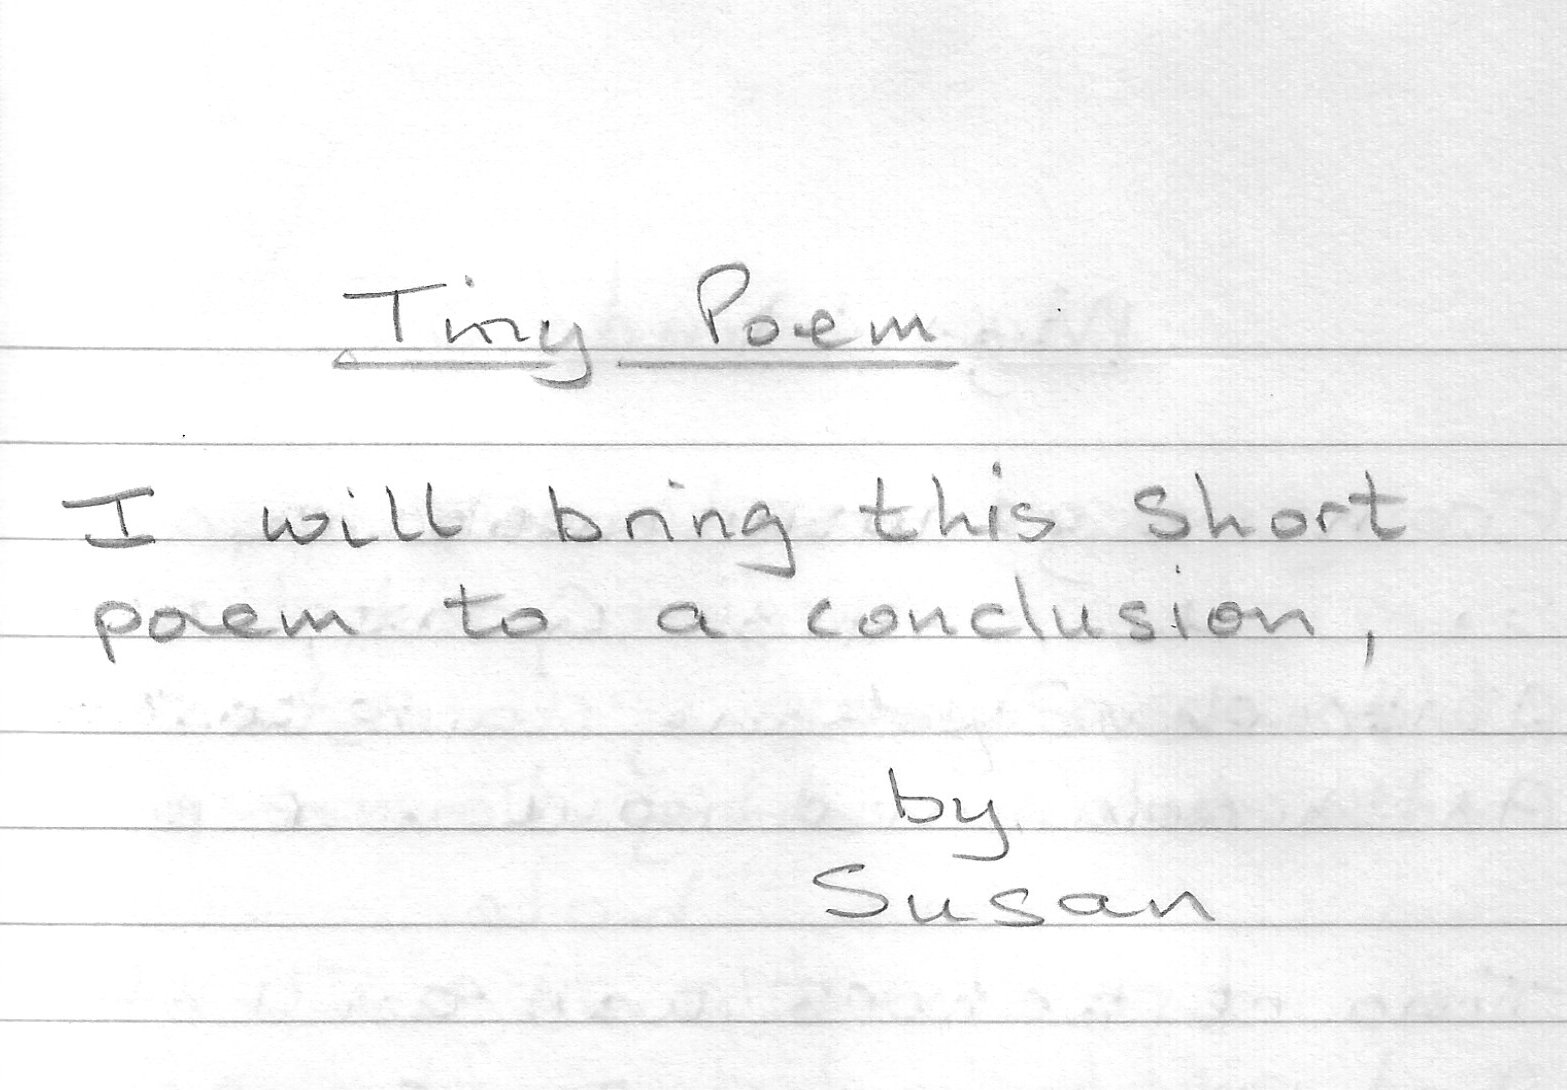 Tiny Poem
I will bring this short
poem to a conclusion,
by
Susan